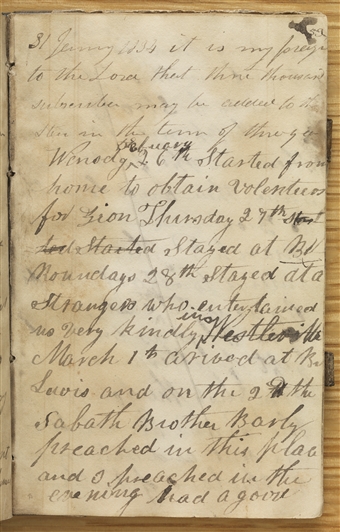 31 Janry 1834 it is my prayer
to the Lord that three thousan
subscriber may be added to the
Star in the term of three ye
Wensdy February 26th Started from
home to obtain volenteers
for Zion Thursday 27th Start
ted Started Stayed at Br
Roundays 28th Stayed at a
Strangers who entertained
us very kindly in Westleville
March 1th arived at Br
Lewis and on the 2d the
Sabath Brother Barly
preached in this plac
and I preached in the
evening had a good